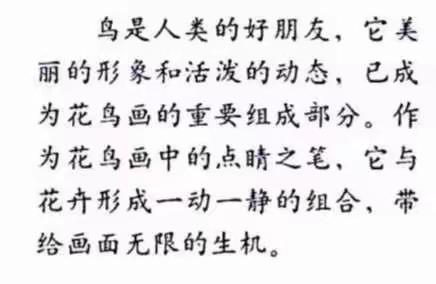 鸟是人类的好朋友，它美
丽的形象和活泼的动态，已成
为花鸟画的重要组成部分。作
为花鸟画中的点睛之笔，它与
花卉形成一动一静的组合，带
给画面无限的生机。